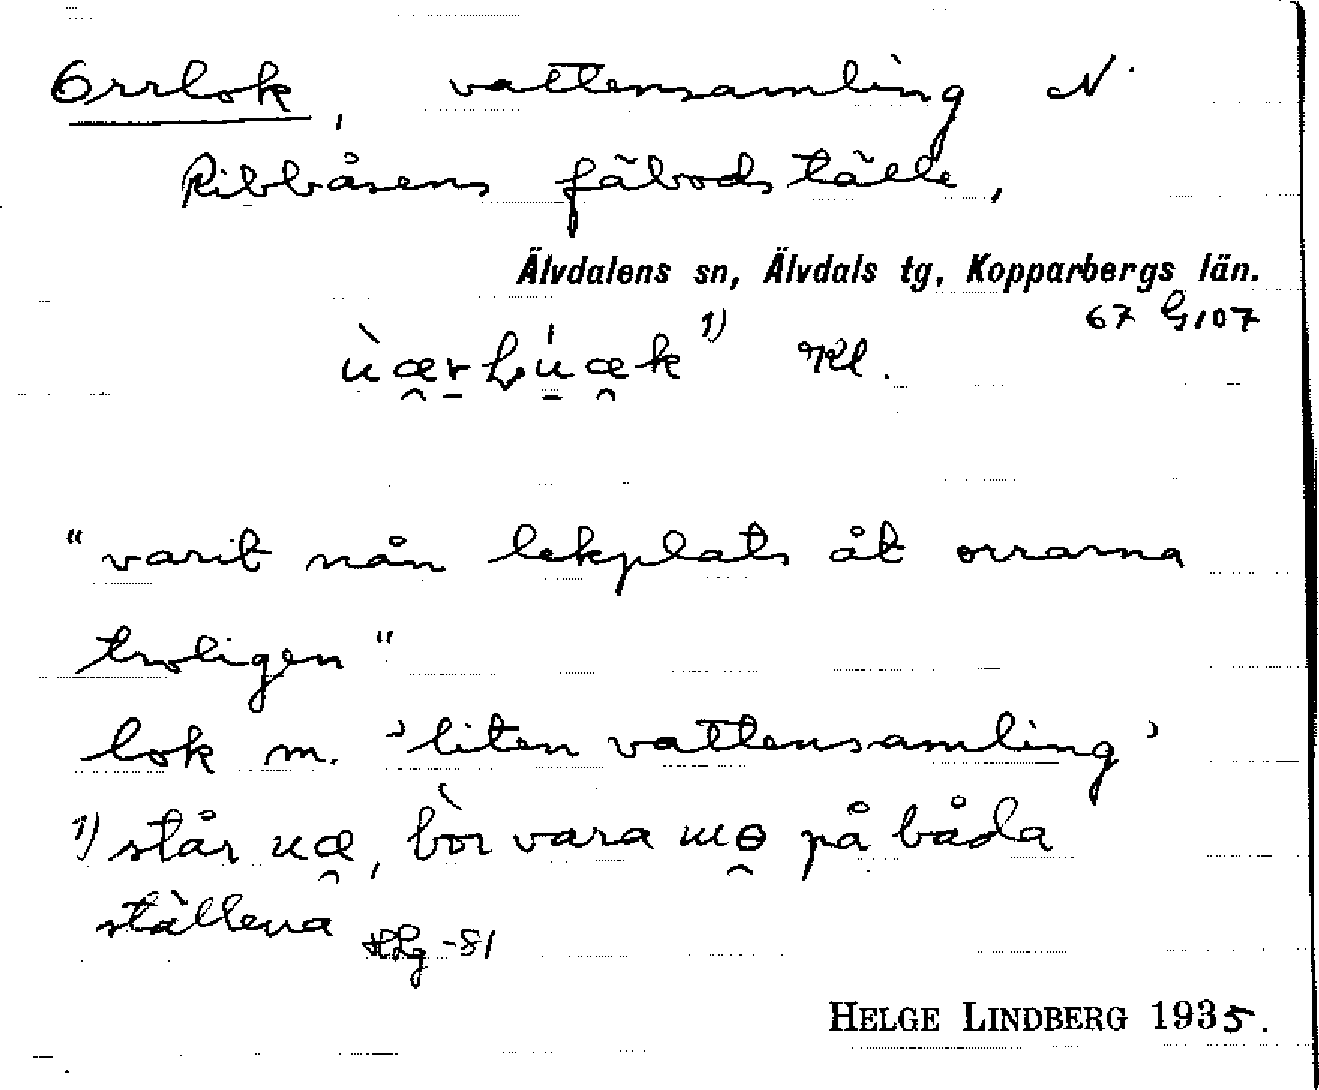 Orrlok, vattensamling N.
Ribbåsens fäbodställe,
Älvdalens sn, Älvdals tg, Kopparbergs län.
67 G107
1) Kl.
"varit nån lekplats åt orrarna
troligen"
lok m. 'liten vattensamling'
1) står uæ̯, bör vara ɯɵ̯ på båda
ställena HLg -81
HELGE LINDBERG 1935.